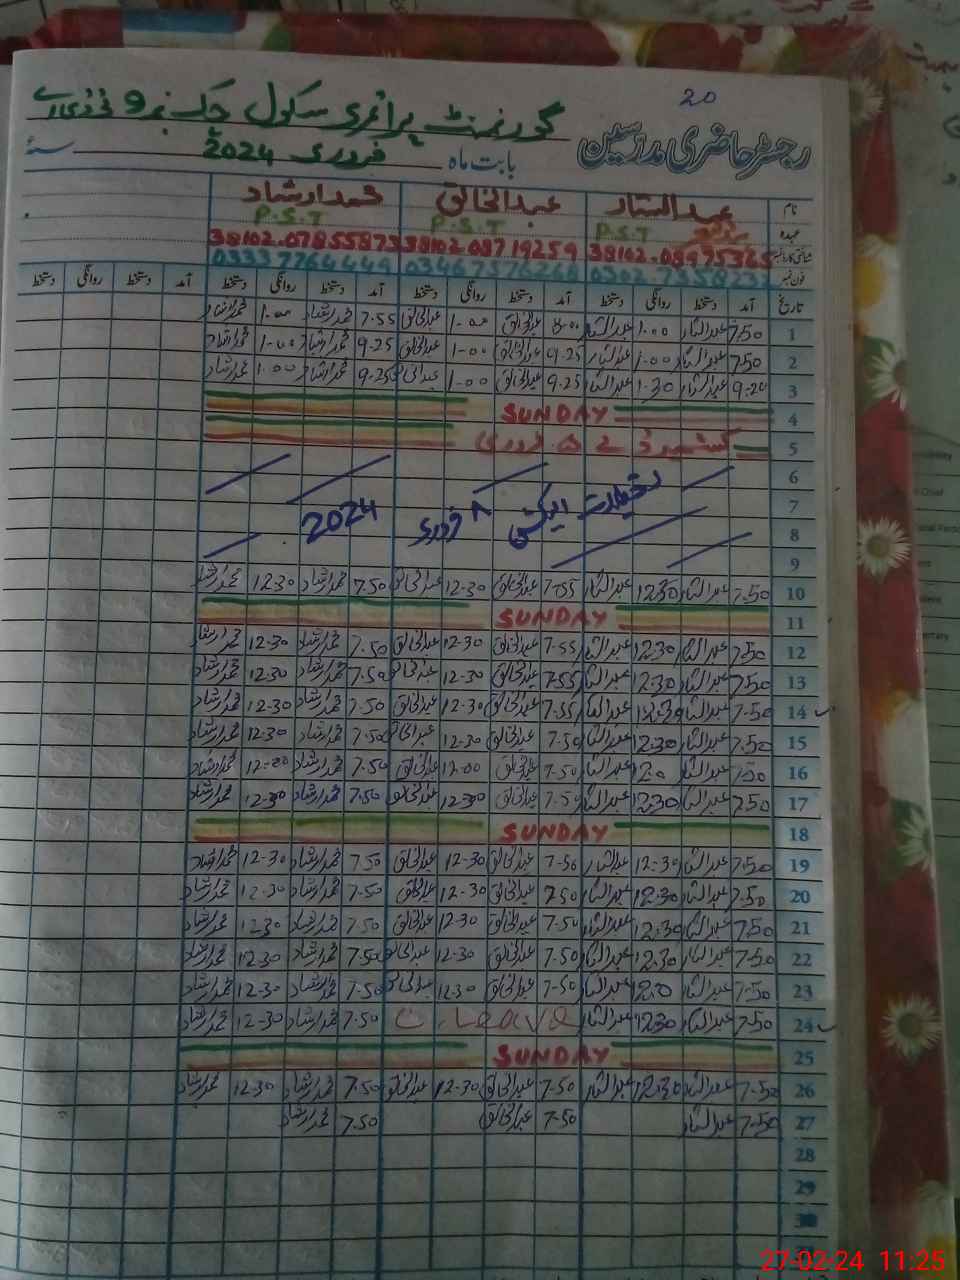 20
گورنمنٹ پرائمری سکول چک نمبر 9
رجسٹر حاضری مدرسین
بابت ماہ فروری 2024 سنہ
نام عبدالستار عبدالخالق محمد ارشاد
عہدہ P.S.T P.S.T P.S.T
شناختی کارڈ نمبر
فون نمبر
تاریخ آمد دستخط روانگی دستخط آمد دستخط روانگی دستخط آمد دستخط روانگی دستخط آمد دستخط روانگی دستخط
1 7.50 عبدالستار 1.00 عبدالستار 8.00 عبدالخالق 1-00 عبدالخالق 7.55 محمد ارشاد 1.00 محمد ارشاد
2 7.50 عبدالستار 1.00 عبدالستار 9.25 عبدالخالق 1-00 عبدالخالق 9.25 محمد ارشاد 1-00 محمد ارشاد
3 9.20 عبدالستار 1.30 عبدالستار 9.25 عبدالخالق 1-00 عبدالخالق 9.25 محمد ارشاد 1.00 محمد ارشاد
4 SUNDAY
5 کشمیر ڈے 5 فروری
6
7 تعطیلات الیکشن ۸ فروری 2024
8
9
10 7.50 عبدالستار 12.30 عبدالستار 7.55 عبدالخالق 12-30 عبدالخالق 7.50 محمد ارشاد 12.30 محمد ارشاد
11 SUNDAY
12 7.50 عبدالستار 12.30 عبدالستار 7.55 عبدالخالق 12-30 عبدالخالق 7.50 محمد ارشاد 12-30 محمد ارشاد
13 7.50 عبدالستار 12.30 عبدالستار 7.55 عبدالخالق 12-30 عبدالخالق 7.50 محمد ارشاد 12.30 محمد ارشاد
14 7.50 عبدالستار 12.30 عبدالستار 7.55 عبدالخالق 12-30 عبدالخالق 7.50 محمد ارشاد 12-30 محمد ارشاد
15 7.50 عبدالستار 12.30 عبدالستار 7.50 عبدالخالق 12-30 عبدالخالق 7.50 محمد ارشاد 12.30 محمد ارشاد
16 7.50 عبدالستار 12.0 عبدالستار 7.50 عبدالخالق 12.00 عبدالخالق 7.50 محمد ارشاد 12-00 محمد ارشاد
17 7.50 عبدالستار 12.30 عبدالستار 7.50 عبدالخالق 12-30 عبدالخالق 7.50 محمد ارشاد 12-30 محمد ارشاد
18 SUNDAY
19 7.50 عبدالستار 12-30 عبدالستار 7.50 عبدالخالق 12-30 عبدالخالق 7.50 محمد ارشاد 12-30 محمد ارشاد
20 7.50 عبدالستار 12.30 عبدالستار 7.50 عبدالخالق 12-30 عبدالخالق 7.50 محمد ارشاد 12-30 محمد ارشاد
21 7.50 عبدالستار 12.30 عبدالستار 7-50 عبدالخالق 12-30 عبدالخالق 7.50 محمد ارشاد 12.30 محمد ارشاد
22 7-50 عبدالستار 12.30 عبدالستار 7.50 عبدالخالق 12-30 عبدالخالق 7.50 محمد ارشاد 12.30 محمد ارشاد
23 7-50 عبدالستار عبدالستار 7-50 عبدالخالق 12.30 عبدالخالق 7.50 محمد ارشاد 12-30 محمد ارشاد
24 7-50 عبدالستار 12.30 عبدالستار C. Leave 7.50 محمد ارشاد 12-30 محمد ارشاد
25 SUNDAY
26 7-50 عبدالستار 12.30 عبدالستار 7-50 عبدالخالق 12-30 عبدالخالق 7.50 محمد ارشاد 12.30 محمد ارشاد
27 7-50 عبدالستار 7-50 عبدالخالق 7.50 محمد ارشاد
28
29
30
27-02-24 11:25